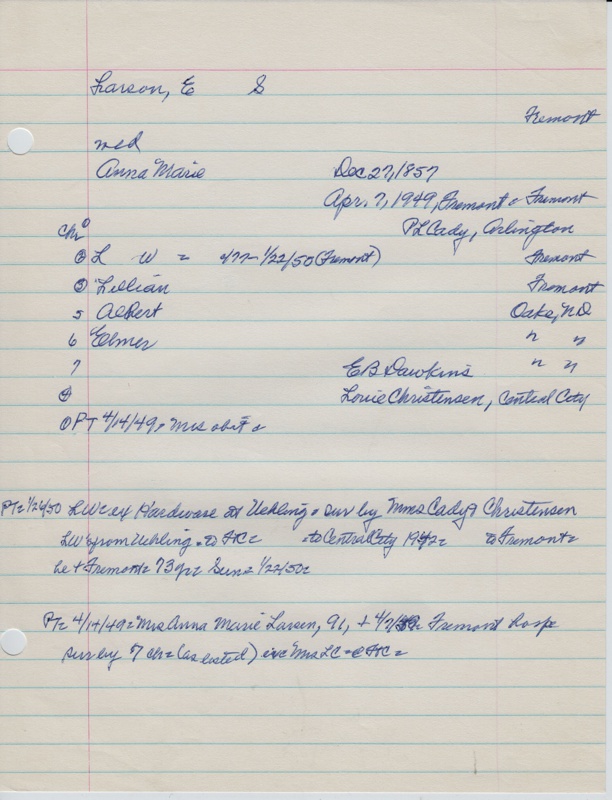 Larson, E S
Fremont
md
Anna Marie Dec 27, 1857
Apr. 7, 1949, Fremont Fremont
Ch P L Cady, Arlington
② L W = 1/22/50 (Fremont) Fremont
③ Lillian Fremont
5 Albert Oaks, ND
6 Elmer " "
7 E B Dawkins " "
④ Louie Christensen, Central City
① PT 4/14/49, Mrs obit
PT= 1/26/50 LW= ex Hardware at Uehling = sur by Mmes Cady & Christensen
LW from Uehling = to = to Central City 1942= to Fremont=
he + Fremont= 73 yr= Sun= 1/22/50=
PT= 4/14/49= Mrs Anna Marie Larsen, 91, + 4/7/49= Fremont hosp=
sur by 7 ch= (as listed) inc Mrs LC=